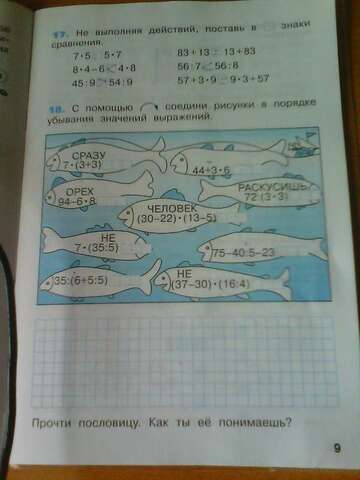 17. Не выполняя действий, поставь в знаки
сравнения.
7·5 = 5·7 83+13 = 13+83
8·4–6 < 4·8 56:7 < 56:8
45:9 > 54:9 57+3·9 = 9·3+57
18. С помощью соедини рисунки в порядке
убывания значений выражений.
СРАЗУ
7·(3+3)
44+3·5
ОРЕХ
94–6·8
РАСКУСИШЬ
72:(3·3)
ЧЕЛОВЕК
(30–22)·(13–5)
НЕ
7·(35:5)
75–40:5–23
35:(6+5:5)
НЕ
(37–30)·(16:4)
Прочти пословицу. Как ты её понимаешь?
9